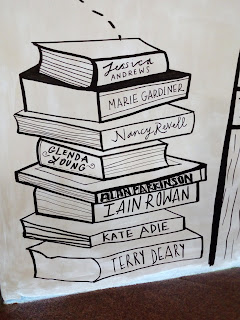 Jessica
ANDREWS
MARIE GARDINER
Nancy Revell
GLENDA
YOUNG
ALAN PARKINSON
IAIN ROWAN
KATE ADIE
TERRY DEARY